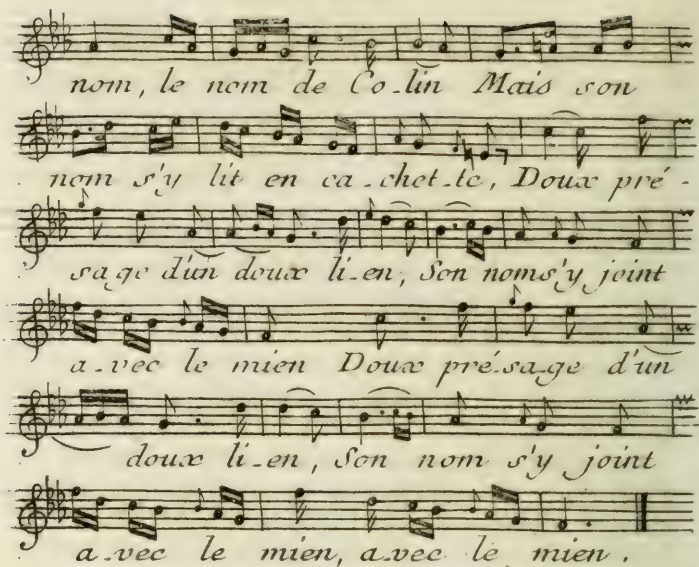 nom, le nom de Co-lin Mais son
nom s'y lit en ca-chet-te, Doux pré-
sage d'un doux li-en, Son nom s'y joint
a-vec le mien Doux pré-sa-ge d'un
doux li-en, Son nom s'y joint
a-vec le mien, a-vec le mien.